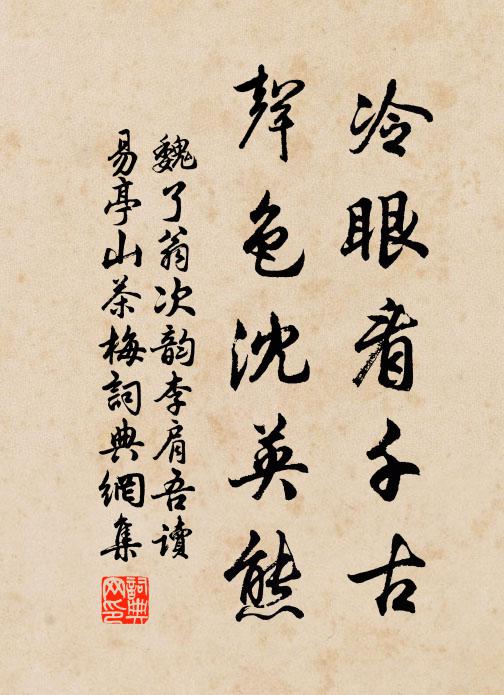 冷眼看千古
聲色沈英熊
魏了翁次韵李肩吾讀
易亭山茶梅詞典網集
詞典网印